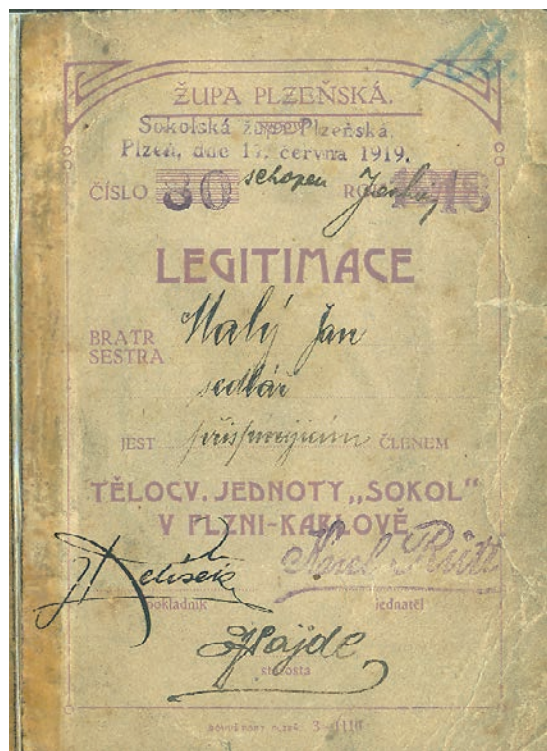 ŽUPA PLZEŇSKÁ.
Sokolská župa Plzeňská.
Plzeň, dne 17. června 1919.
ČÍSLO 80 schopen ROK 1918
LEGITIMACE
BRATR
SESTRA Malý Jan
sedlář
JEST přispívajícím ČLENEM
TĚLOCV. JEDNOTY „SOKOL"
V PLZNI-KARLOVĚ
pokladník jednatel
Hajde
starosta
3-1110